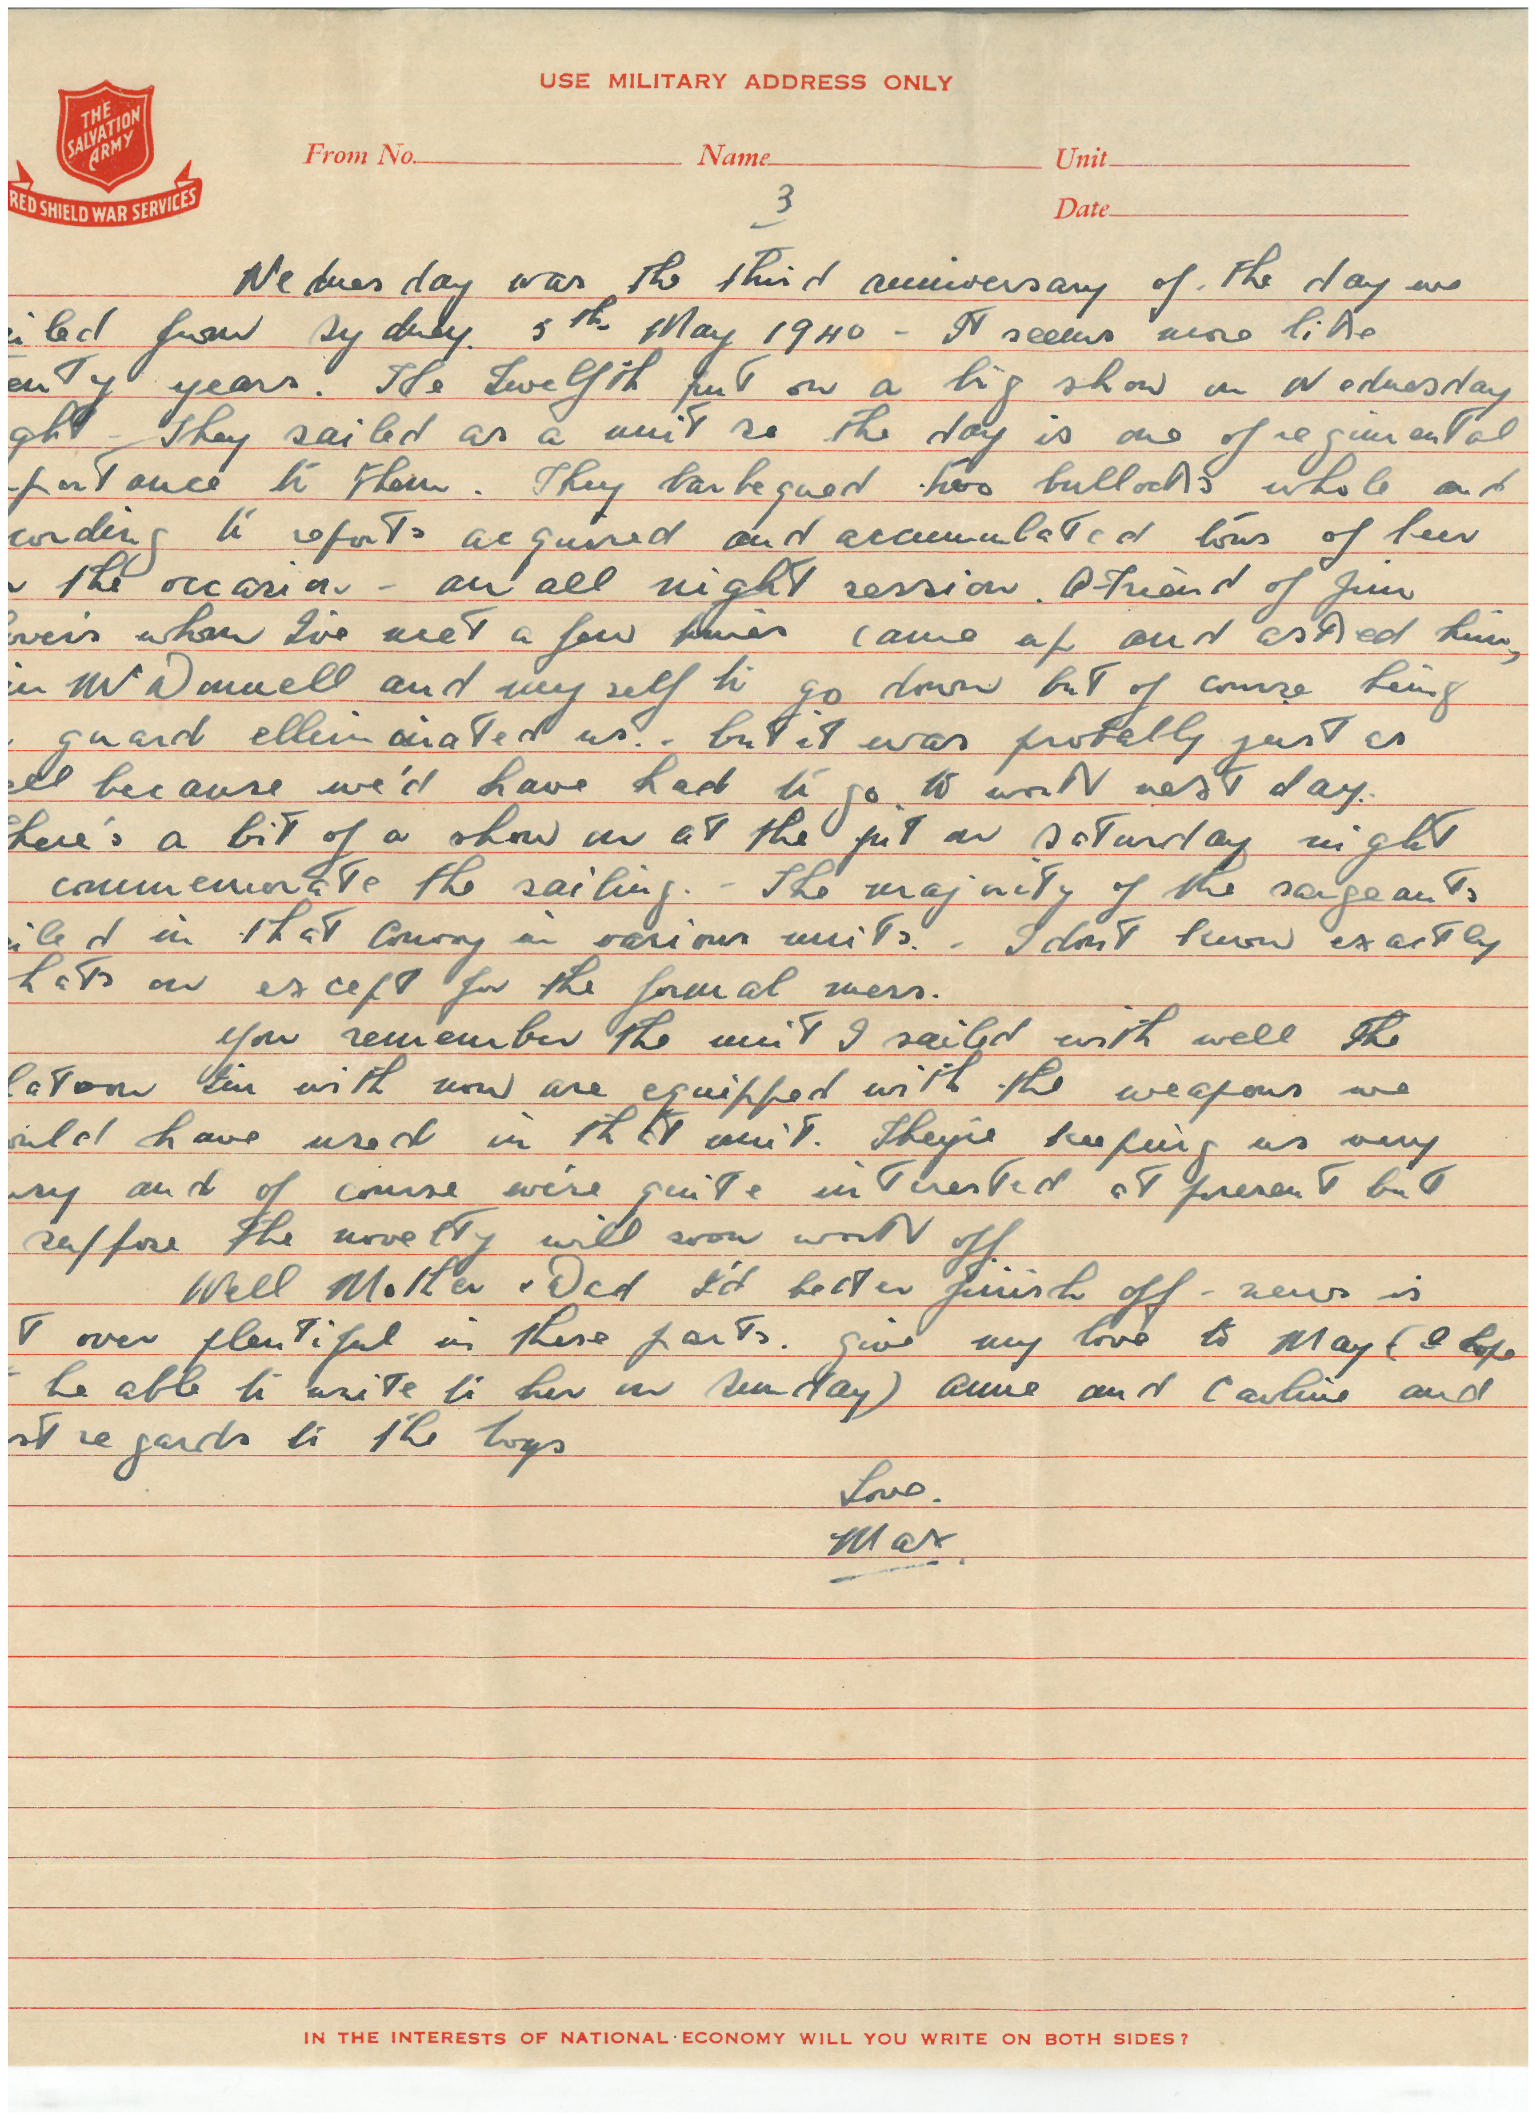 USE MILITARY ADDRESS ONLY
THE
SALVATION
ARMY
RED SHIELD WAR SERVICES
From No. Name Unit
3
Date
Wednesday was the third anniversary of the day we
iled from Sydney. 5th May 1940 - It seems more like
enty years. The Twelfth put on a big show on Wednesday
ght - They sailed as a unit so the day is one of regimental
portance to them. They barbequed two bullocks whole and
cording to reports acquired and accummulated tons of beer
the occasion - an all night session. A friend of Jim
whom I've met a few times came up and asked him,
im McDonnell and myself to go down but of course being
guard elliminated us. - but it was probably just as
ell because we'd have had to go to work next day.
here's a bit of a show on at the pit on Saturday night
commemorate the sailing. - The majority of the sargeants
iled in that convoy in various units. - I dont know exactly
hats on except for the formal mess.
You remember the unit I sailed with well the
latoon I'm with now are equipped with the weapons we
ould have used in that unit. They're keeping us very
usy and of course we're quite interested at present but
suppose the novelty will soon work off
Well Mother & Dad I'd better finish off - news is
t over plentiful in these parts. Give my love to May (I hope
be able to write to her on Sunday) Anne and Carline and
st regards to the boys
Love.
Max.
IN THE INTERESTS OF NATIONAL ECONOMY WILL YOU WRITE ON BOTH SIDES?